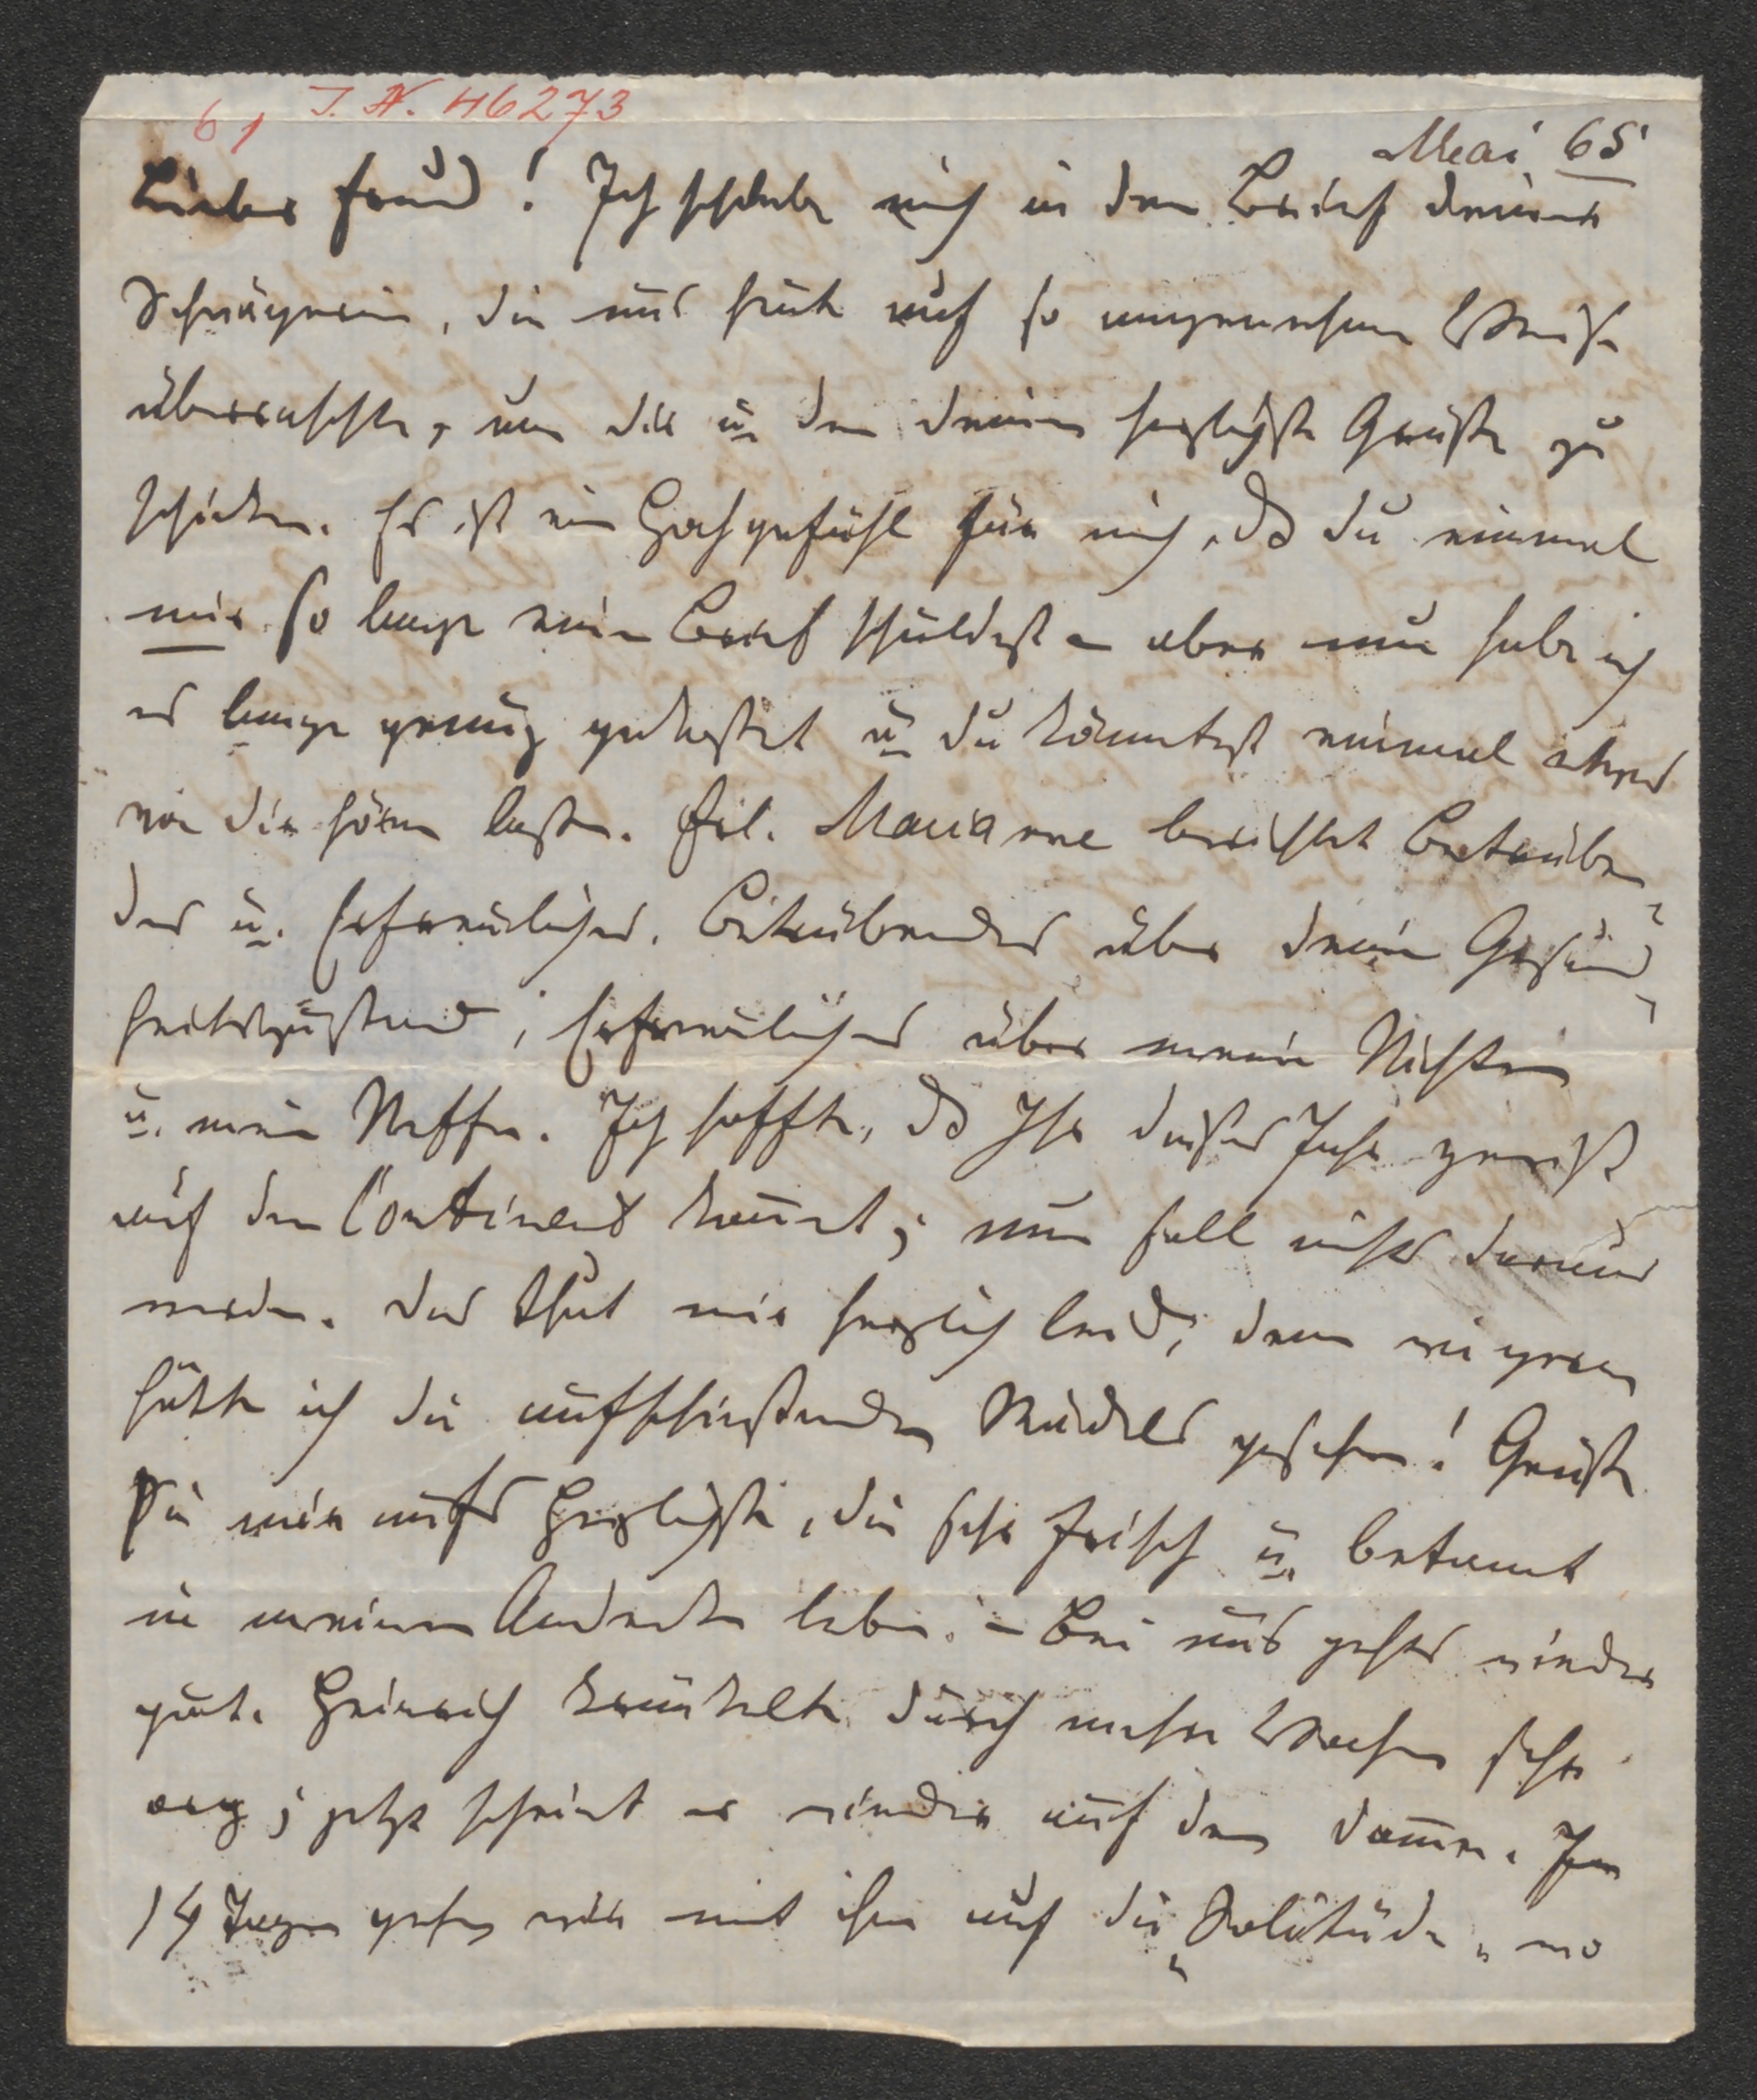 61 I. N. 46273
Mai 65
Lieber Freund! Ich schiebe mich in den Brief deiner
Schwägerin, die uns heute auf so angenehme Weise
überraschte, um dir u. den deinen herzlichste Grüße zu
schicken. Es ist ein Hochgefühl für mich, dß du einmal
mir so lange einen Brief schuldest – aber nun habe ich
es lange genug gekostet u. du könntest einmal etwas
von dir hören lassen. Frl. Marianne berichtet Betrüben
des u. Erfreuliches. Betrübendes über deine Gesund
heitszustand; Erfreuliches über meine Nichten
u. meine Neffen. Ich hoffte, dß Ihr dieses Jahr gewiß
auf den Continent kommt; nun soll nichts daraus
werden. Das thut mir herzlich leid; denn wie gern
hätte ich die aufschießenden Mädels gesehen! Grüße
Sie mir aufs Herzlichste, die sehr frisch u.
in meinem Andenken leben. – Bei uns gehts wieder
gut. Heinrich kränkelte durch mehre Wochen sehr
arg; jetzt scheint er wieder auf dem Damme. In
14 Tagen gehen wir mit ihm auf die „Solitüde", wo